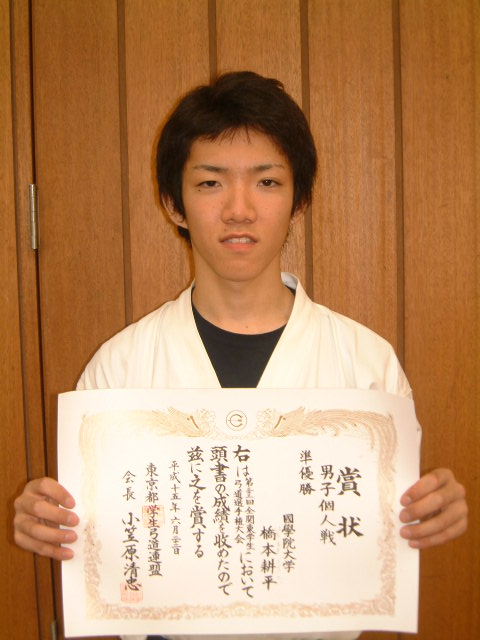 賞状
男子個人戦
準優勝
國學院大学
橋本耕平
右は第三十三回全関東学生弓道選手権大会において
頭書の成績を収めたので
玆に之を賞する
平成十五年六月二十二日
東京都学生弓道連盟
会長 小笠原清忠